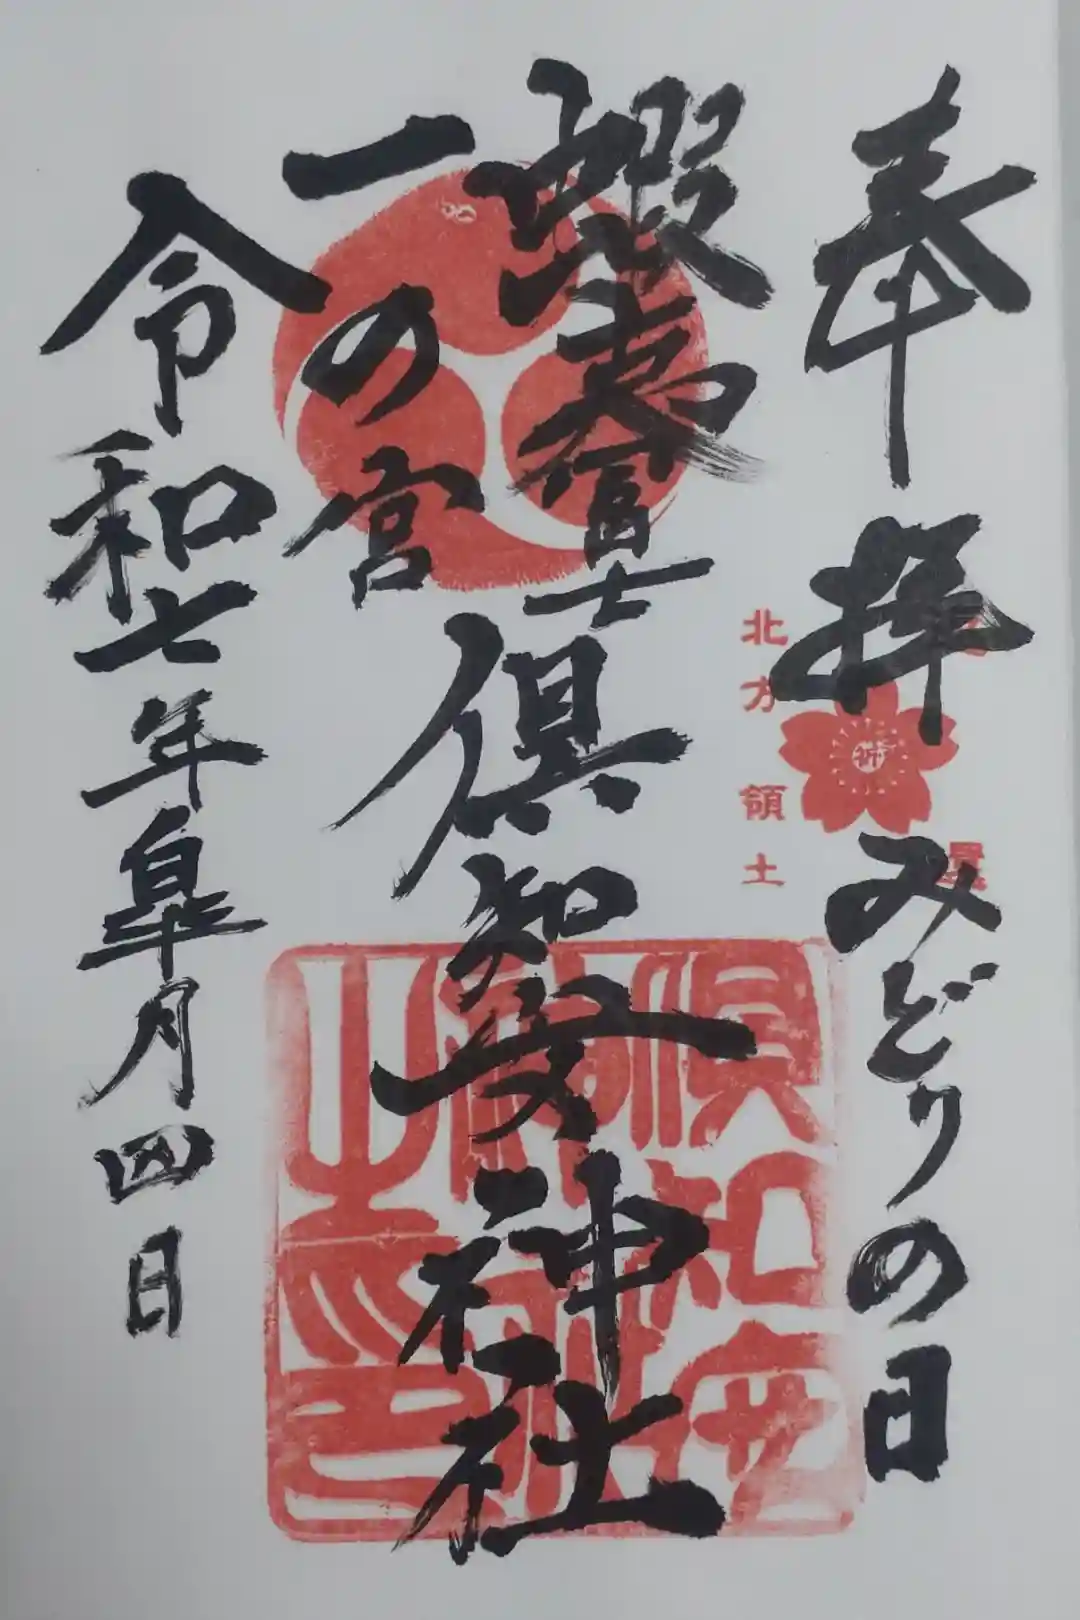 奉拝 みどりの日
北方領土
蝦夷富士
一の宮
倶知安神社
令和七年皐月四日
倶知安
神社
之印